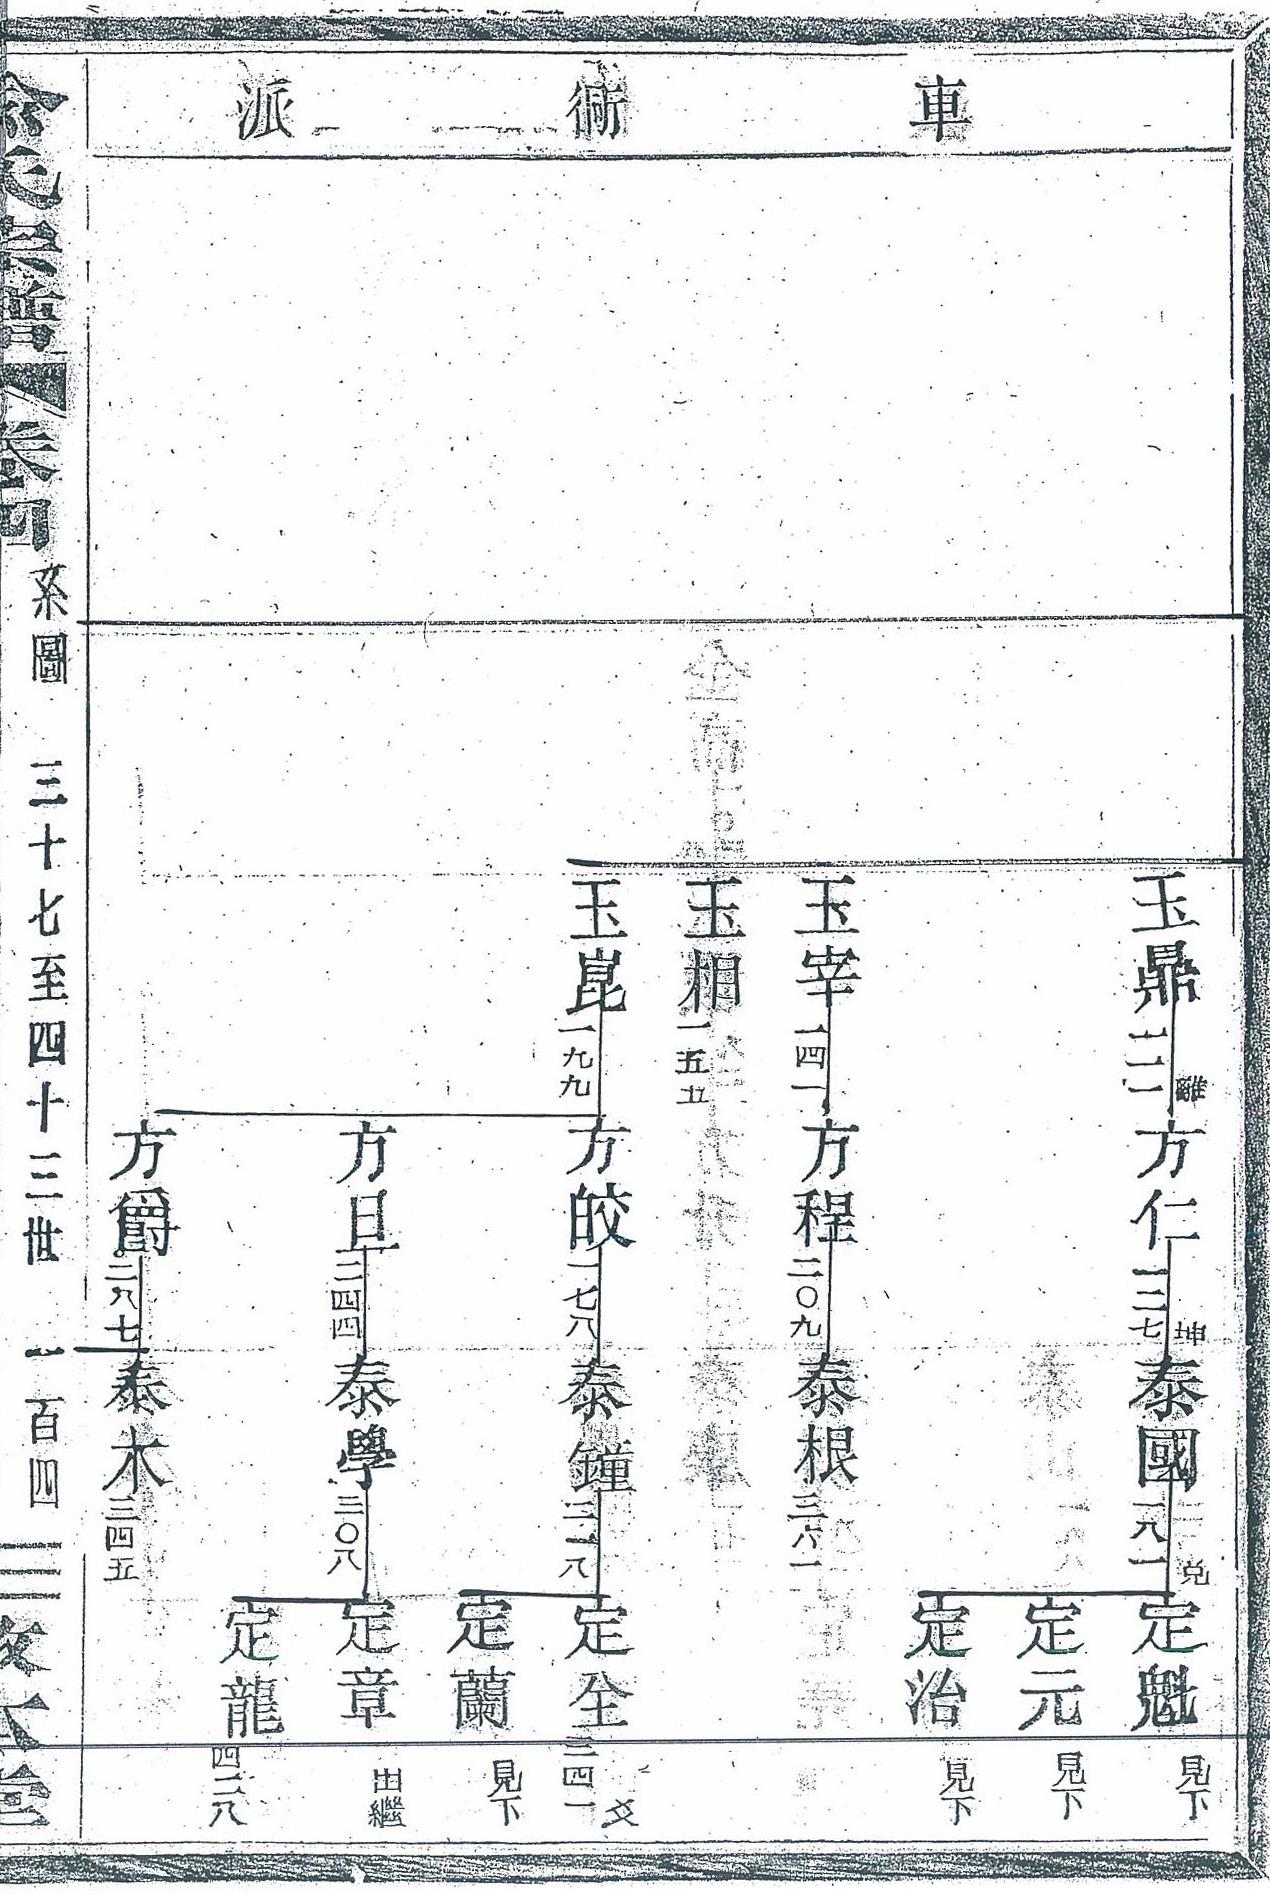 車衕派
玉鼎 一二一 離
方仁 一二七 坤
泰國 一八一 兑
定魁 見下
定元 見下
定治 見下
玉宰 一四一
方程 二〇九
泰根 三六一
玉相 一五五
玉崑 一九九
方皎 一七八
泰鐘 三一八
定全 三四一 爻
定蘭 見下
方旦 二四四
泰學 三〇八
定章 出繼
定龍 四二八
方爵 二八七
泰木 三四五
俞氏宗譜 卷四 系圖 三十七至四十三世 一百四